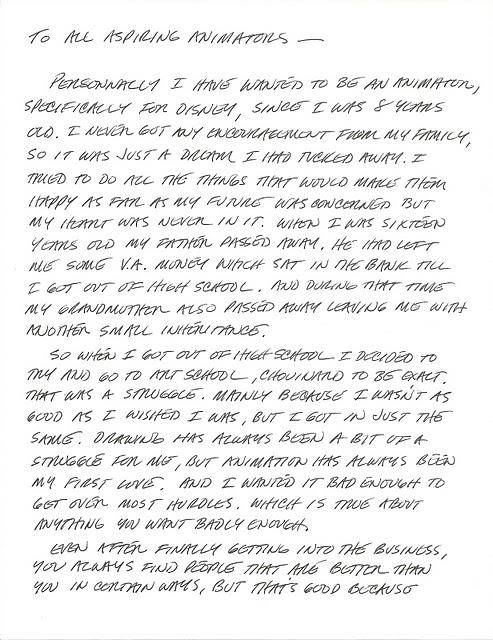 TO ALL ASPIRING ANIMATORS —
PERSONNALLY I HAVE WANTED TO BE AN ANIMATOR,
SPECIFICALLY FOR DISNEY, SINCE I WAS 8 YEARS
OLD. I NEVER GOT ANY ENCOURAGEMENT FROM MY FAMILY,
SO IT WAS JUST A DREAM I HAD TUCKED AWAY. I
TRIED TO DO ALL THE THINGS THAT WOULD MAKE THEM
HAPPY AS FAR AS MY FUTURE WAS CONCERNED BUT
MY HEART WAS NEVER IN IT. WHEN I WAS SIXTEEN
YEARS OLD MY FATHER PASSED AWAY. HE HAD LEFT
ME SOME V.A. MONEY WHICH SAT IN THE BANK TILL
I GOT OUT OF HIGH SCHOOL. AND DURING THAT TIME
MY GRANDMOTHER ALSO PASSED AWAY LEAVING ME WITH
ANOTHER SMALL INHERITANCE.
SO WHEN I GOT OUT OF HIGH SCHOOL I DECIDED TO
TRY AND GO TO ART SCHOOL, CHOUINARD TO BE EXACT.
THAT WAS A STRUGGLE. MAINLY BECAUSE I WASN'T AS
GOOD AS I WISHED I WAS, BUT I GOT IN JUST THE
SAME. DRAWING HAS ALWAYS BEEN A BIT OF A
STRUGGLE FOR ME, BUT ANIMATION HAS ALWAYS BEEN
MY FIRST LOVE. AND I WANTED IT BAD ENOUGH TO
GET OVER MOST HURDLES. WHICH IS TRUE ABOUT
ANYTHING YOU WANT BADLY ENOUGH.
EVEN AFTER FINALLY GETTING INTO THE BUSINESS,
YOU ALWAYS FIND PEOPLE THAT ARE BETTER THAN
YOU IN CERTAIN WAYS, BUT THAT'S GOOD BECAUSE